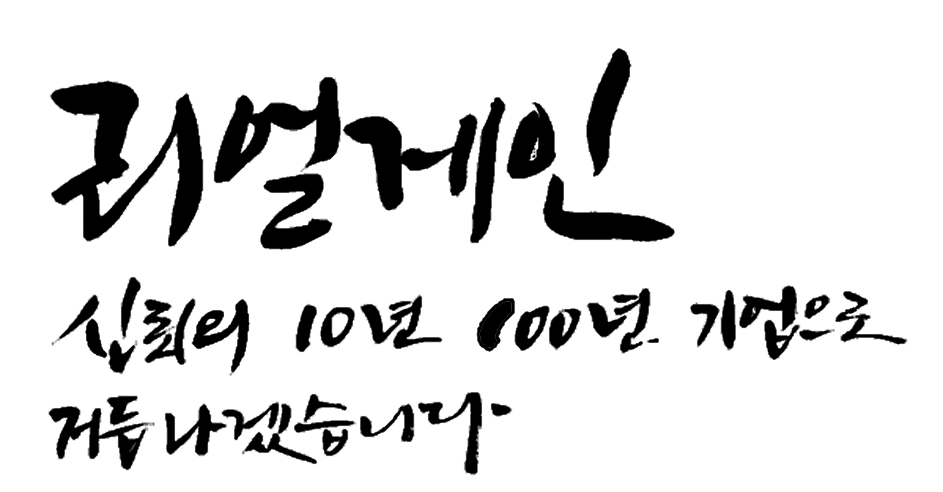 리얼게인
신뢰의 10년 100년 기업으로
거듭나겠습니다.